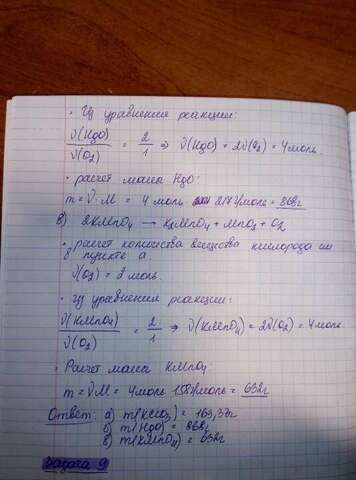 • Из уравнения реакции:
ν(HgO) / ν(O2) = 2/1 ⇒ ν(HgO) = 2ν(O2) = 4 моль.
• расчет массы HgO:
m = ν·M = 4 моль · 217 г/моль = 868г
в) 2KMnO4 → K2MnO4 + MnO2 + O2
• расчет количества вещества кислорода см
в пункте а
ν(O2) = 2 моль.
• Из уравнения реакции:
ν(KMnO4) / ν(O2) = 2/1 ⇒ ν(KMnO4) = 2ν(O2) = 4 моль.
• Расчет массы KMnO4
m = νM = 4моль · 158г/моль = 632г
Ответ: а) m(KClO3) = 163,37г
б) m(HgO) = 868г
в) m(KMnO4) = 632г
Задача 9